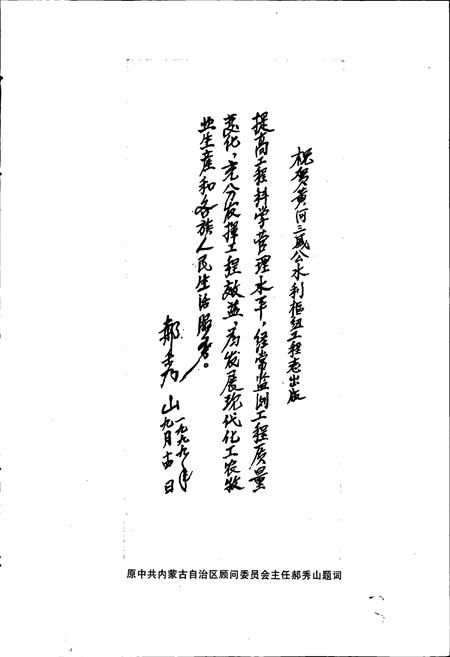 祝贺黄河三盛公水利枢纽工程志出版
提高工程科学管理水平，经常监测工程质量
变化，充分发挥工程效益，为发展现代化工农牧
业生產和各族人民生活服务。
郝秀山
一九九九年
九月十日
原中共内蒙古自治区顾问委员会主任郝秀山题词